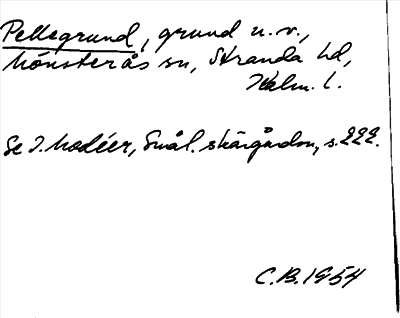 Pellegrund, grund u.v.,
Mönsterås sn, Stranda hd,
Kalm. l.
Se I. Modéer, Smål. skärgårdsn, s. 222.
C.B. 1954